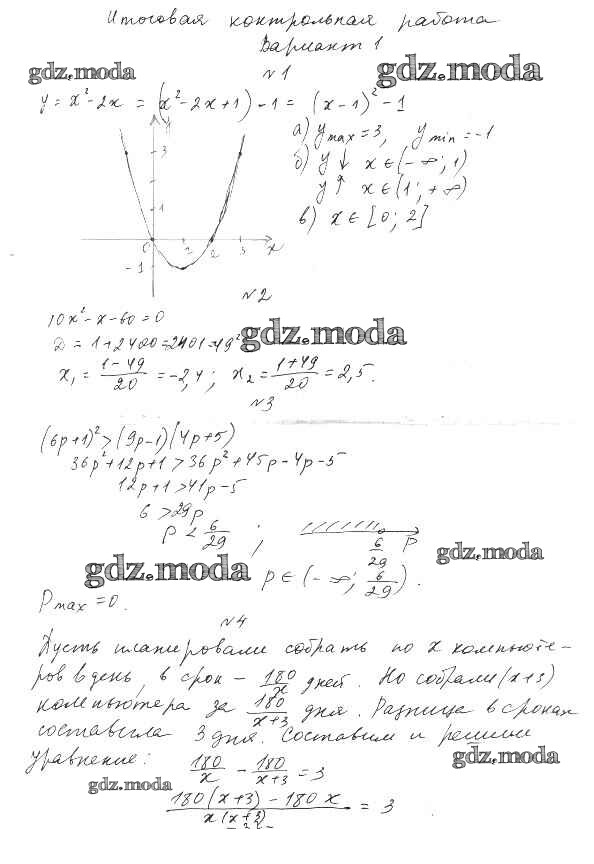 Итоговая контрольная работа
Вариант 1
gdz.moda
№1
gdz.moda
y = x² - 2x = (x² - 2x + 1) - 1 = (x - 1)² - 1
y
3
1
0
1 2 3 x
-1
а) y max = 3, y min = -1
б) y ↓ x ∈ (-∞; 1)
y ↑ x ∈ (1; +∞)
в) x ∈ [0; 2]
№2
10x² - x - 60 = 0
D = 1 + 2400 = 2401 = 49²
gdz.moda
x₁ = (1 - 49)/20 = -2,4; x₂ = (1 + 49)/20 = 2,5.
№3
(6p + 1)² > (9p - 1)(4p + 5)
36p² + 12p + 1 > 36p² + 45p - 4p - 5
12p + 1 > 41p - 5
6 > 29p
p < 6/29 ;
6/29 p
gdz.moda
gdz.moda
p ∈ (-∞; 6/29).
p max = 0.
№4
Пусть планировали собрать по x компьюте-
ров в день, в срок - 180/x дней. Но собрали (x + 3)
компьютера за 180/(x + 3) дня. Разница в сроках
составила 3 дня. Составим и решим
уравнение:
gdz.moda
180/x - 180/(x + 3) = 3
gdz.moda
(180(x + 3) - 180x)/(x(x + 3)) = 3